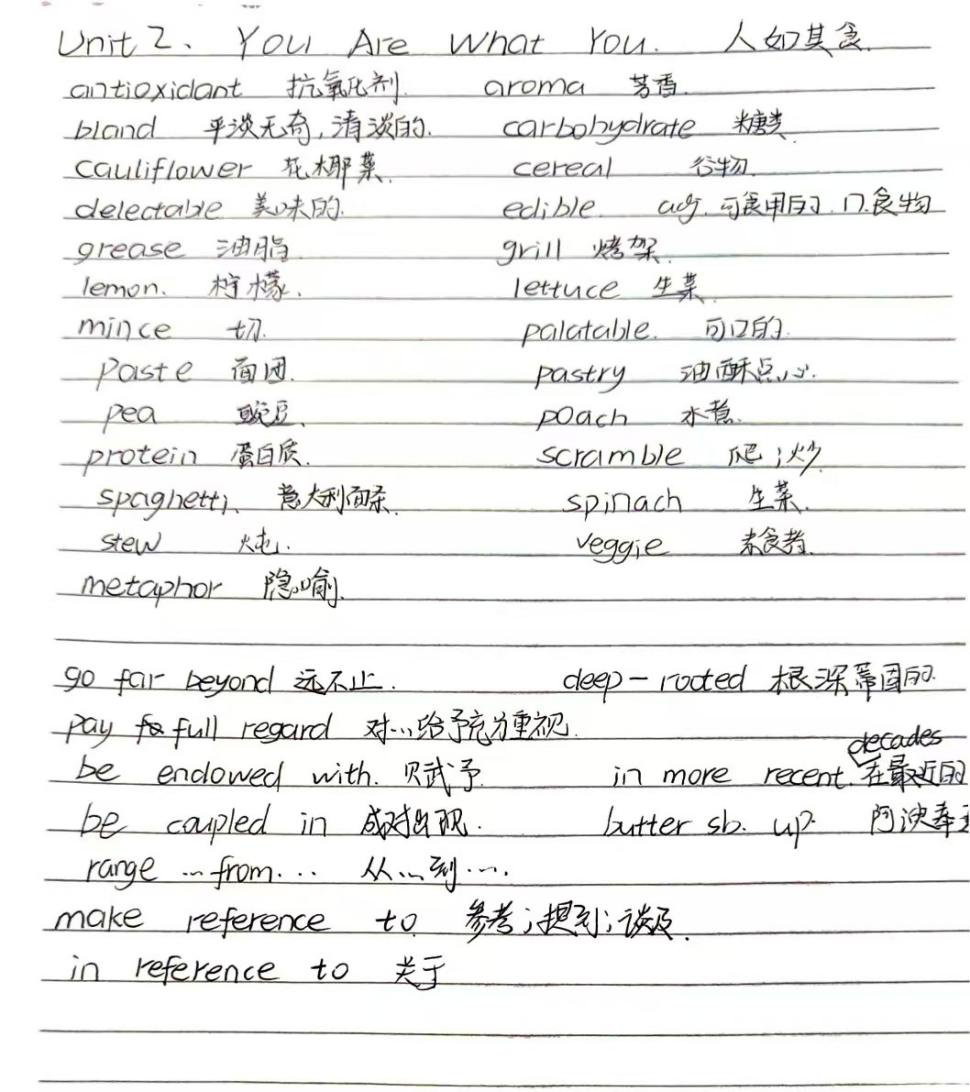 Unit 2、 You Are What You. 人如其食.
antioxidant 抗氧化剂. aroma 芳香.
bland 平淡无奇,清淡的. carbohydrate 糖类
cauliflower 花椰菜. cereal 谷物.
delectable 美味的. edible. adj. 可食用的. n.食物
grease 油脂 grill 烤架.
lemon. 柠檬. lettuce 生菜.
mince 切. palatable. 可口的.
paste 面团. pastry 油酥点心.
pea 豌豆. poach 水煮.
protein 蛋白质. scramble 爬;炒
spaghetti、 意大利面条. spinach 生菜.
stew 炖. veggie 素食者.
metaphor 隐喻.
go far beyond 远不止. deep-rooted 根深蒂固的.
pay full regard 对…给予充分重视.
decades
be endowed with. 赋予. in more recent. 在最近的
be coupled in 成对出现. butter sb. up. 阿谀奉
range …from… 从…到….
make reference to 参考;提到;谈及.
in reference to 关于